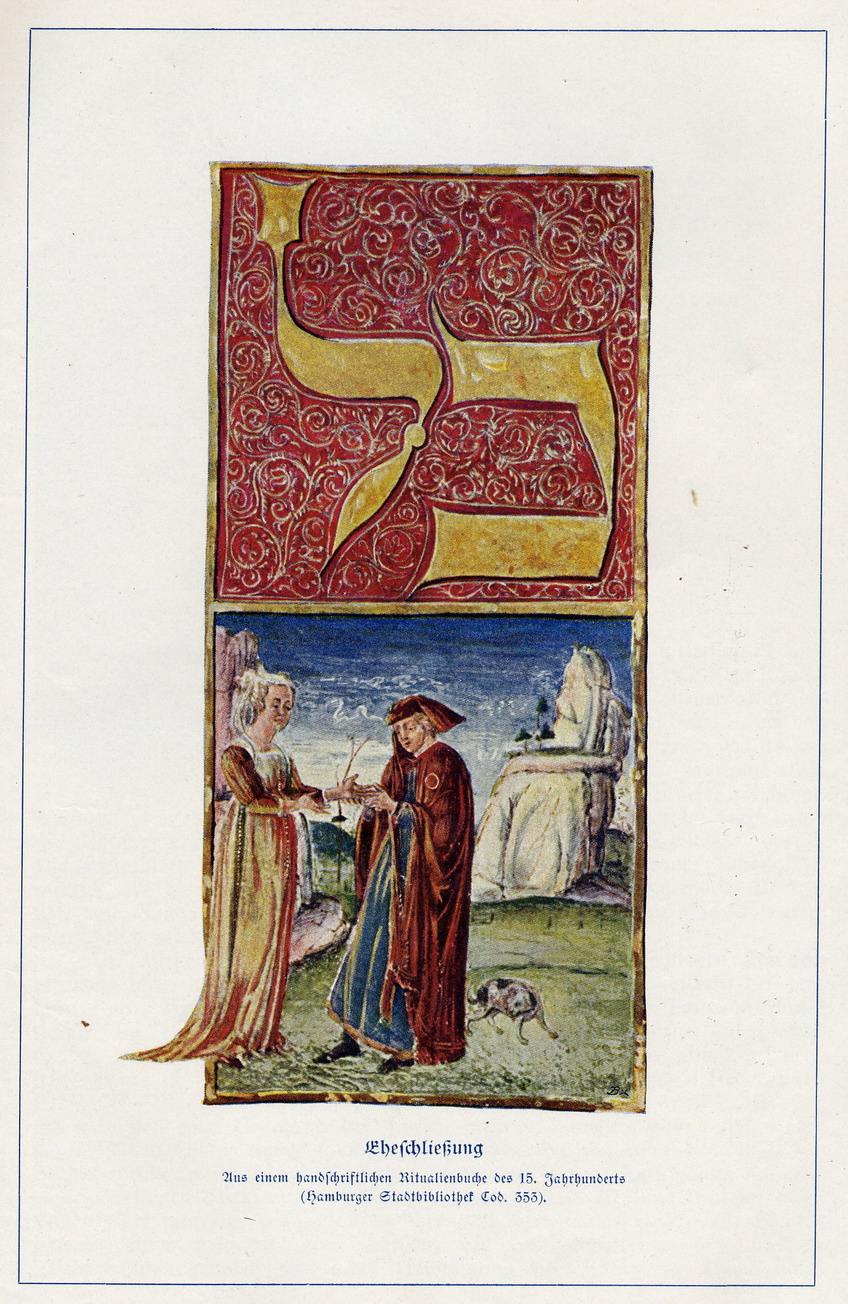 Eheſchließung
Aus einem handſchriftlichen Ritualienbuche des 15. Jahrhunderts
(Hamburger Stadtbibliothek Cod. 353).